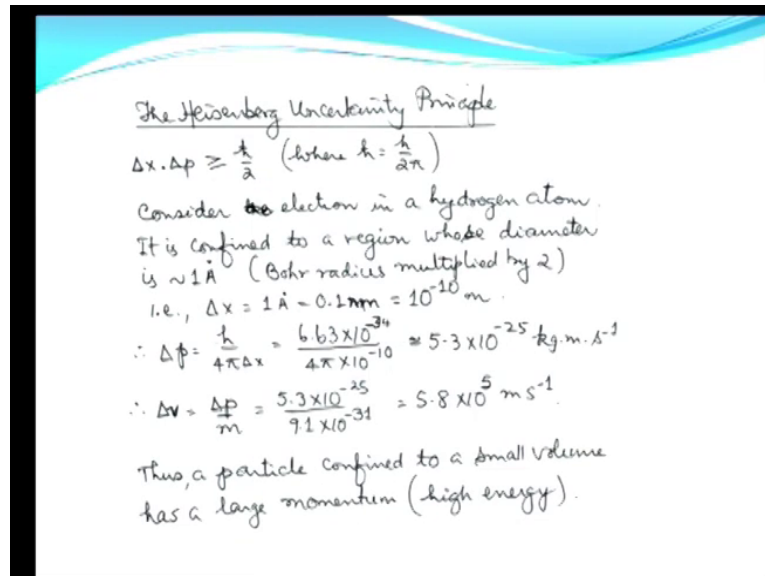 The Heisenberg Uncertainity Principle
Δx.Δp ≥ ℏ/2 (where ℏ = h/2π)
Consider electron in a hydrogen atom.
It is confined to a region whose diameter
is ~1Å (Bohr radius multiplied by 2)
i.e., Δx = 1Å = 0.1nm = 10⁻¹⁰ m.
∴ Δp = h/4πΔx = 6.63×10⁻³⁴/4π×10⁻¹⁰ = 5.3×10⁻²⁵ kg.m.s⁻¹
∴ Δv = Δp/m = 5.3×10⁻²⁵/9.1×10⁻³¹ = 5.8×10⁵ ms⁻¹
Thus, a particle confined to a small volume
has a large momentum (high energy).